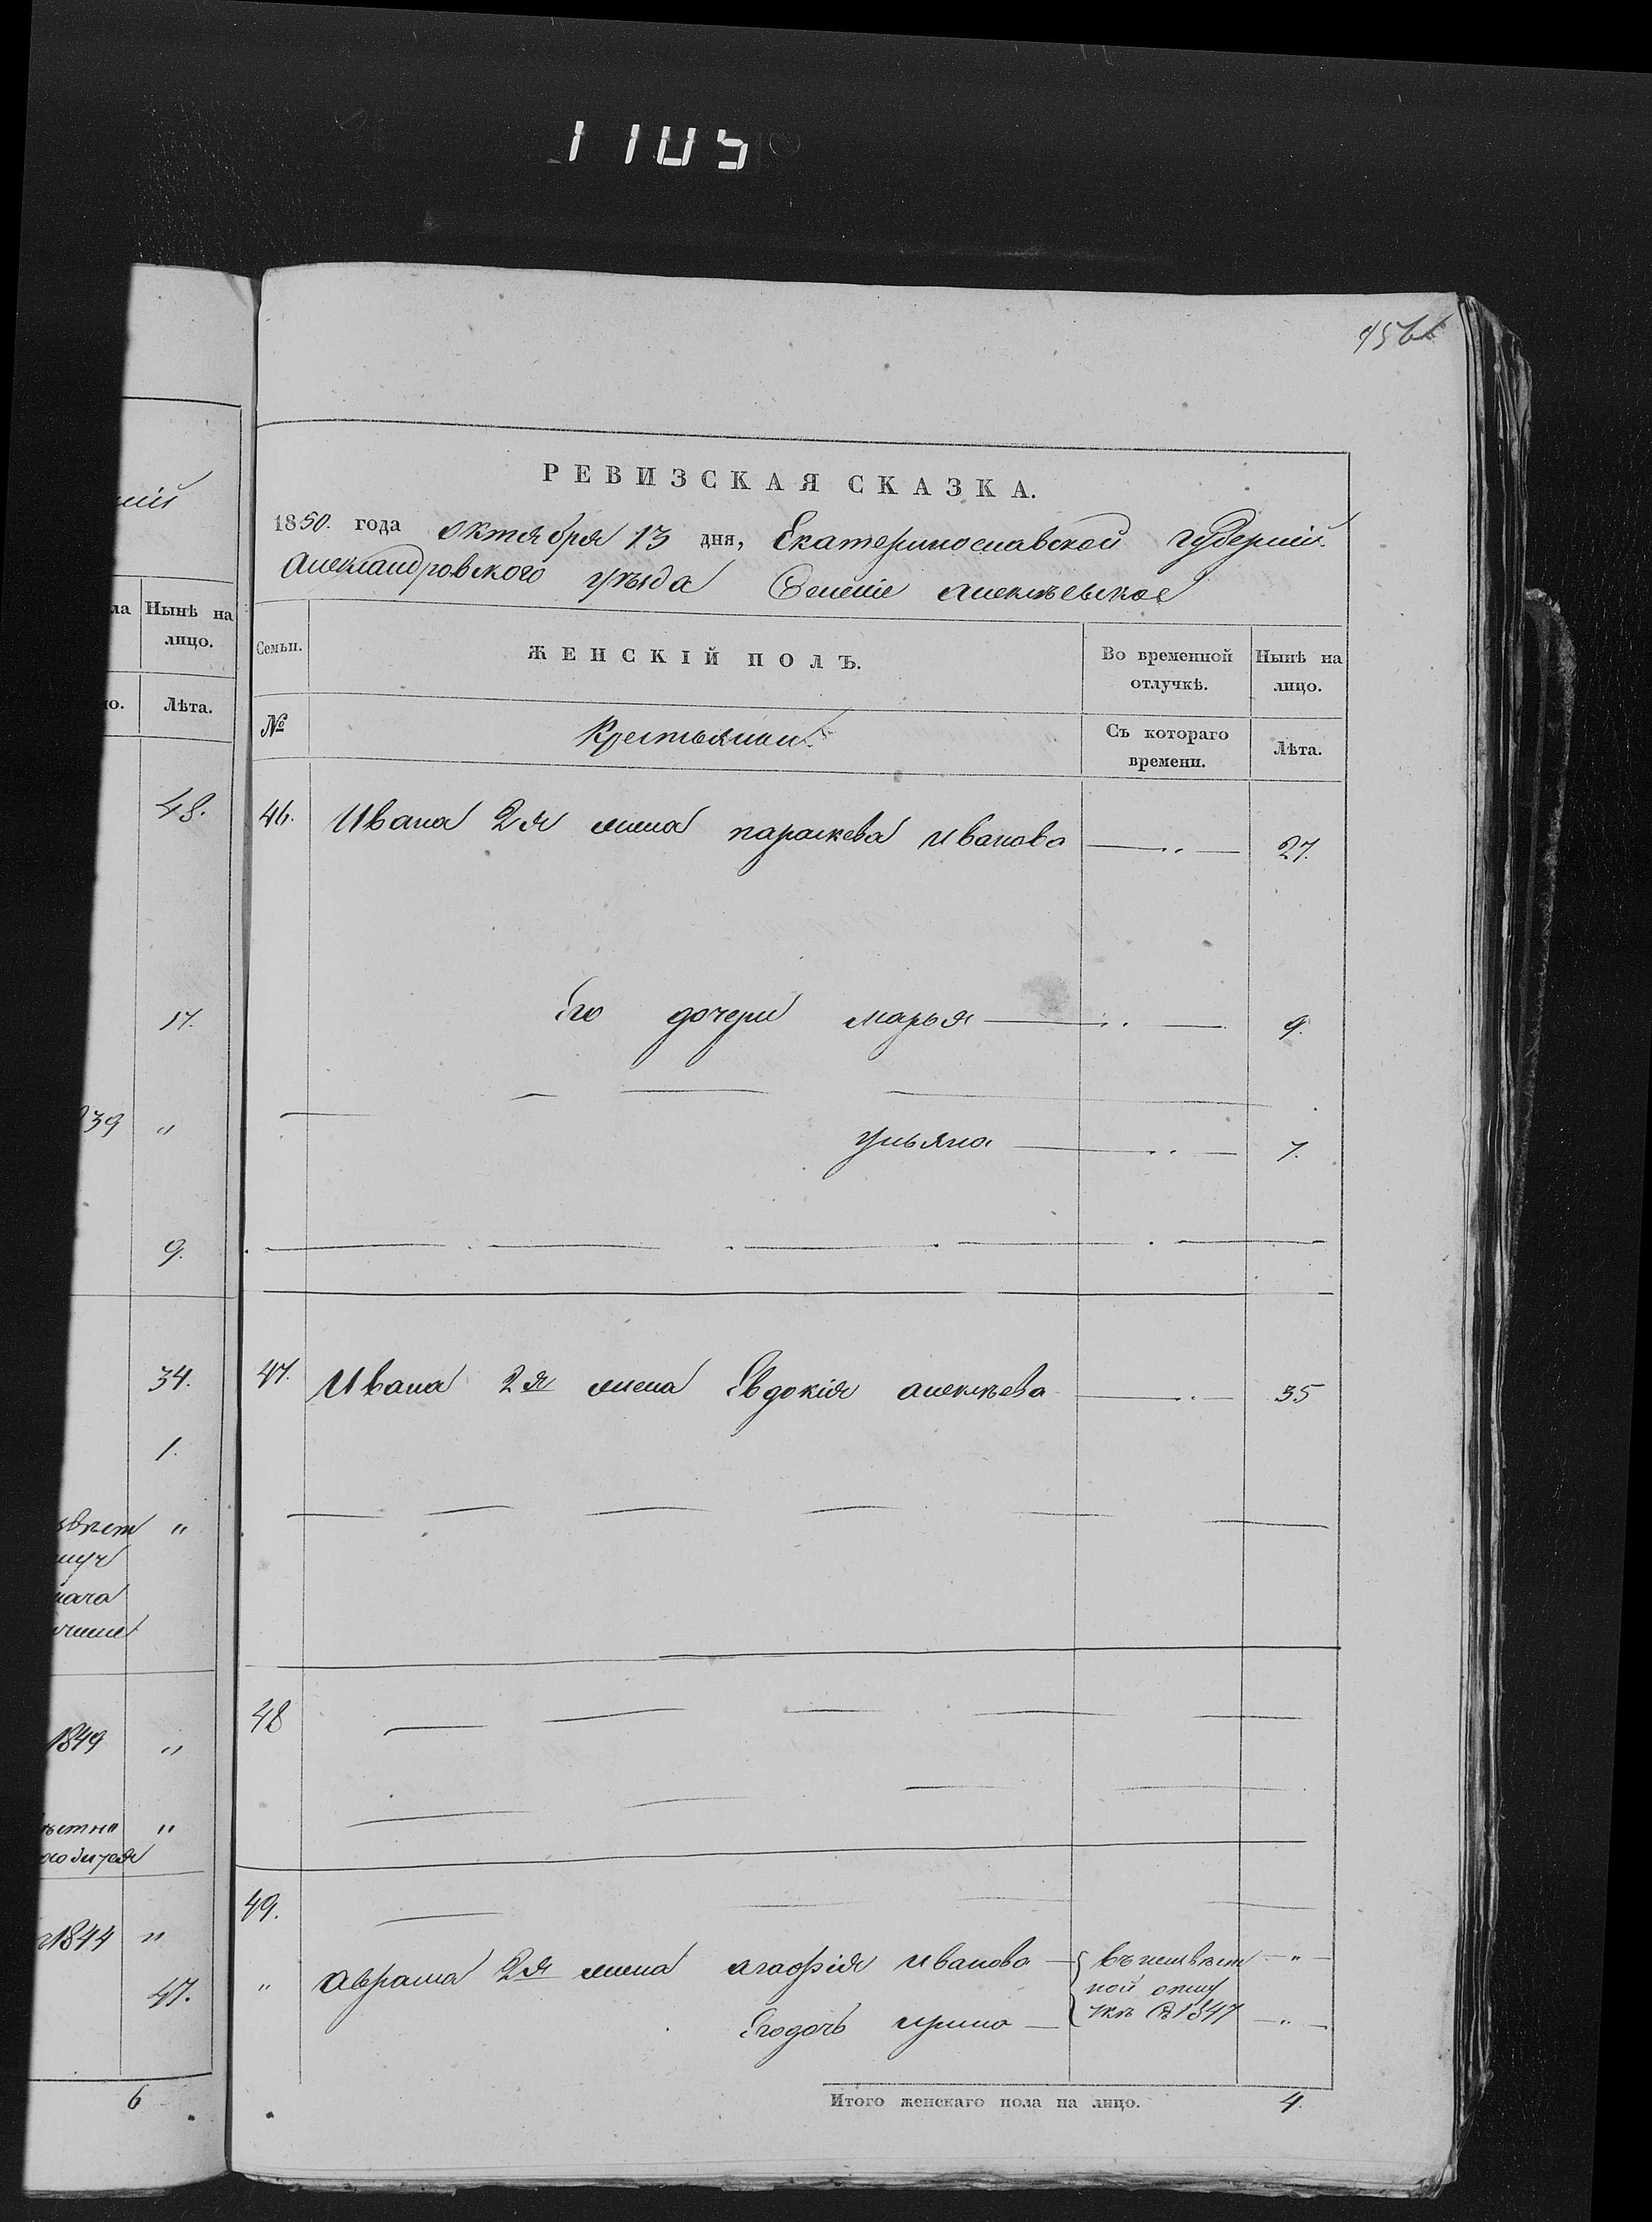 1105
РЕВИЗСКАЯ СКАЗКА.
1850. года октября 13 дня, Екатеринославской губерніи
Александровского уѣзда Селеніе Алексѣевское
ній
ла
Нынѣ на лицо.
Семьи.
ЖЕНСКІЙ ПОЛЪ.
Во временной отлучкѣ.
Нынѣ на лицо.
но.
Лѣта.
№
Крестьянки.
Съ котораго времени.
Лѣта.
48.
46. Ивана 2я жена параскева иванова 27.
17.
Его дочери марья 9.
839 "
ульяна 7.
9.
34.
47. Ивана 2я жена Евдокія алексѣева 35
1.
"
1849 "
48
"
49.
1844 "
" Аврама 2я жена агафія иванова въ неизвѣст "
47.
ной отлу
Его дочь ирина чкѣ съ 1847 "
6
Итого женскаго пола на лицо. 4.